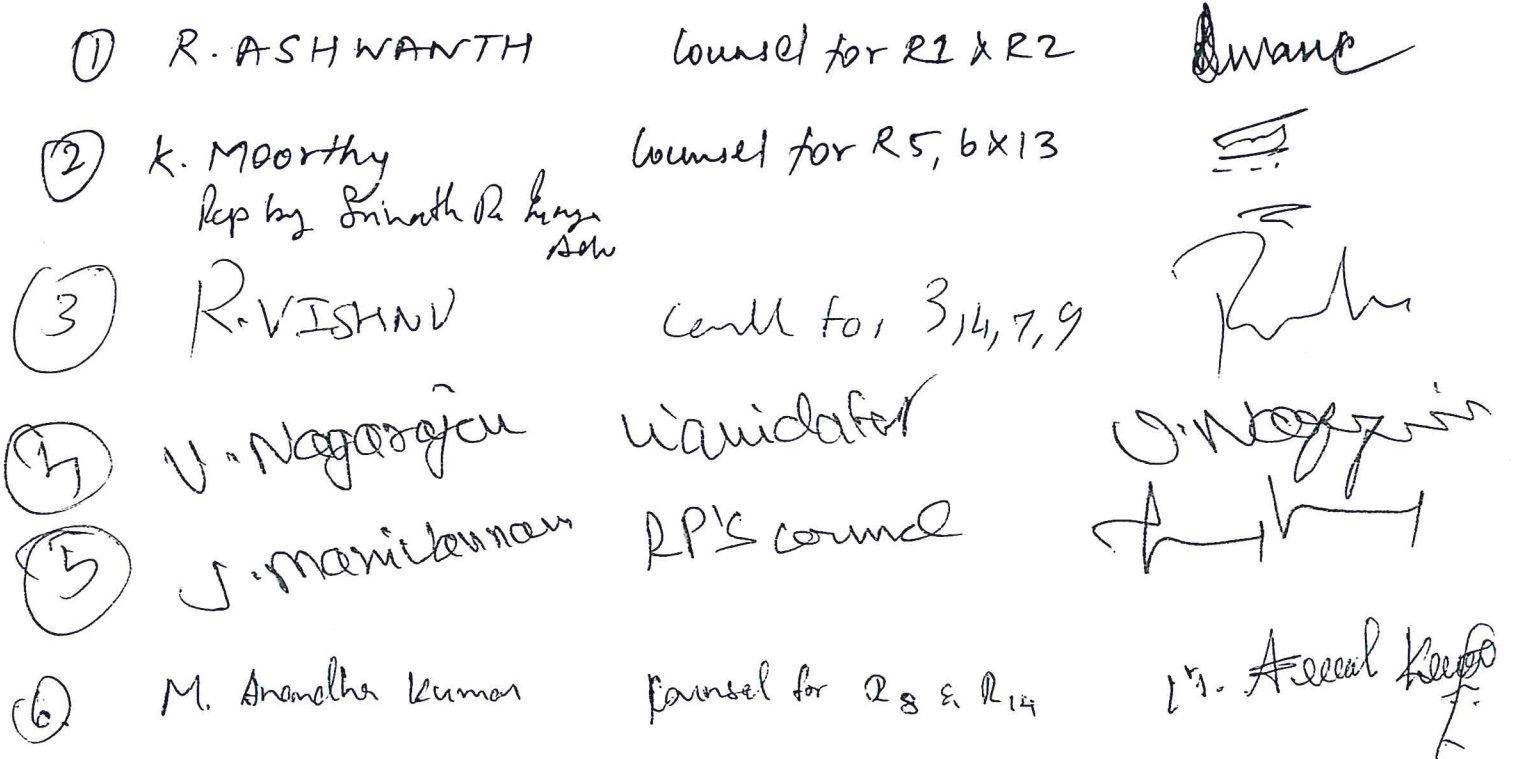 ① R. ASHWANTH Counsel for R1 & R2
② K. Moorthy Counsel for R5, 6 & 13
Rep by Srinath
③ R. VISHNU for 3,4,7,9
④ V. Nagarajan Liquidator V. Nagarajan
⑤ J. Manickannan RP's counsel
⑥ M. Anandha Kumar Counsel for R8 & R14 M. Anand Kumar